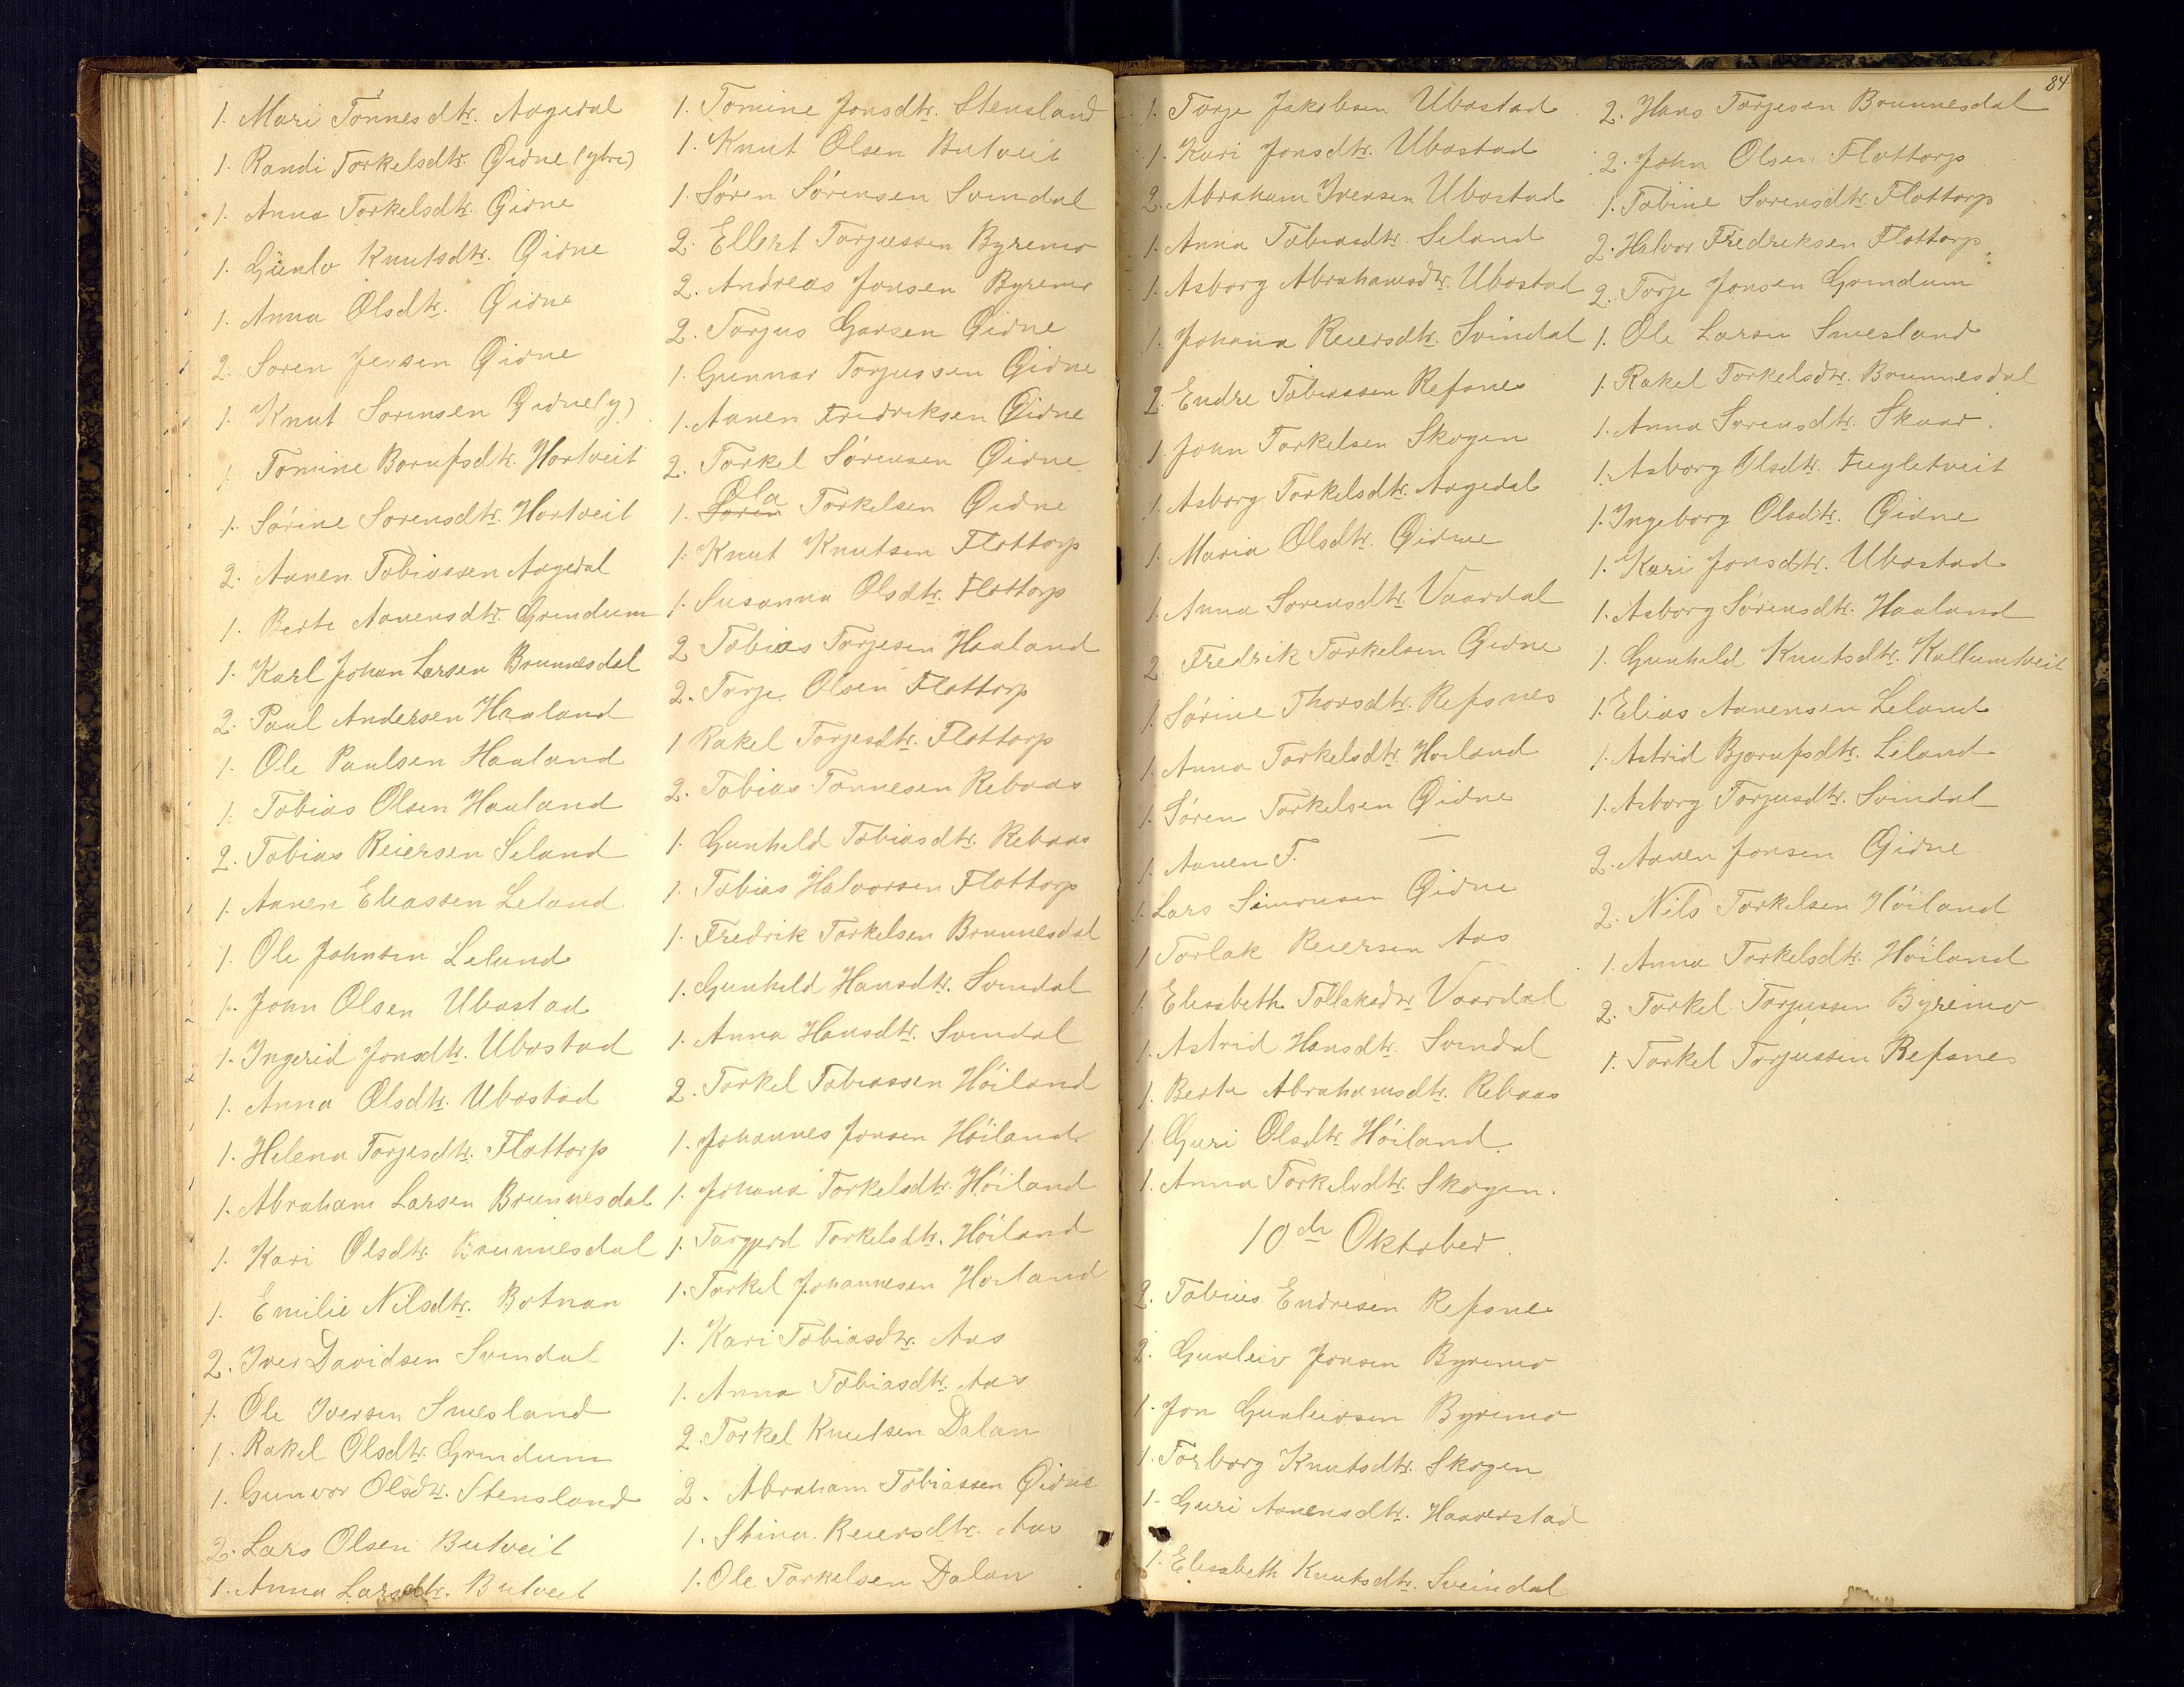 1. Mari Tönnesdtr. Aagedal
1. Randi Torkelsdtr. Öidne (ytre)
1. Anna Torkelsdtr. Öidne
1. Gunlo Knutsdtr. Öidne
1. Anna Olsdtr. Öidne
2. Soren Jensen Öidne
1. Knut Sorensen Öidne (y)
1. Tomine Borufsdtr. Hortveit
1. Sörine Sorensdtr. Hortveit
2. Aanen Tobiassen Aagedal
1. Berte Aanensdtr. Grendum
1. Karl Johan Larsen Brunnesdal
2. Paul Andersen Haaland
1. Ole Paulsen Haaland
1. Tobias Olsen Haaland
2. Tobias Reiersen Seland
1. Aanen Eleassen Leland
1. Ole Johnsen Leland
1. John Olsen Ubostad
1. Ingerid Jonsdtr. Ubostad
1. Anna Olsdtr. Ubostad
1. Helena Torjesdtr. Flottorp
1. Abraham Larsen Brunnesdal
1. Kari Olsdtr. Brunnesdal
1. Emilie Nilsdtr. Botnan
2. Iver Davidsen Svindal
1. Ole Iversen Smesland
1. Rakel Olsdtr. Grindum
1. Gunvor Olsdtr. Stensland
2. Lars Olsen Butveit
1. Anna Larsdtr. Butveit
1. Tomine Jonsdtr. Stensland
1. Knut Olsen Butveit
1. Sören Sörensen Svindal
2. Ellert Torjussen Byremo
2. Andreas Jonsen Byremo
2. Torjus Garsen Öidne
1. Gunnar Torjussen Öidne
1. Aanen Fredriksen Öidne
2. Torkel Sörensen Öidne
Ola
1. Soren Torkelsen Öidne
1. Knut Knutsen Flottorp
1. Susanna Olsdtr. Flottorp
2. Tobias Torjesen Haaland
2. Torje Olsen Flottorp
1 Rakel Torjesdtr. Flottorp
2. Tobias Tonnesen Rebaas
1. Gunhild Tobiasdtr. Rebaas
1. Tobias Halvorsen Flottorp
1. Fredrik Torkelsen Brunnesdal
1. Gunhild Hansdtr. Svindal
1. Anna Hansdtr. Svindal
2. Torkel Tobiassen Höiland
1. Johannes Jonsen Höiland
1. Johana Torkelsdtr. Höiland
1. Torgjerd Torkelsdtr. Höiland
1. Torkel Johannesen Hoiland
1. Kari Tobiasdtr. Aas
1. Anna Tobiasdtr. Aas
2. Torkel Knutsen Dalan
2. Abraham Tobiassen Öidne
1. Stina Reiersdtr. Aas
1. Ole Torkelsen Dalan
84
1. Torje Jakobsen Ubostad
1. Kari Jonsdtr. Ubostad
2. Abraham Iversen Ubostad
1. Anna Tobiasdtr. Seland
1. Asborg Abrahamsdtr. Ubostad
1. Johana Reiersdtr. Svindal
2. Endre Tobiassen Refsnes
1. John Torkelsen Skogen
1. Asborg Torkelsdtr. Aagedal
1. Maria Olsdtr. Öidne
1. Anna Sorensdtr. Vaardal
2. Fredrik Torkelsen Öidne
1. Sörine Thorsdtr. Refsnes
1. Anna Torkelsdtr. Hoiland
1. Sören Torkelsen Öidne
1. Aanen T. —
1. Lars Simonsen Öidne
1 Torlak Reiersen Aas
1. Elisabeth Tollaksdtr Vaardal
1. Astrid Hansdtr. Svindal
1. Berte Abrahamsdtr. Rebaas
1. Guri Olsdtr Höiland
1. Anna Torkelsdtr. Skogen.
10de Oktober.
2. Tobias Endresen Refsne
2. Gunleiv Jonsen Byremo
1. Jon Gunleivsen Byremo
1. Torborg Knutsdtr. Skogen
1. Guri Aanensdtr. Haaverstad
1. Elisabeth Knutsdtr. Sveindal
2. Hans Torjesen Brunnesdal
2. John Olsen Flottorp
1. Tobine Sorensdtr. Flottorp
2. Halvor Fredreksen Flottorp
2. Torje Jonsen Grindum
1. Ole Larsen Smesland
1. Rakel Torkelsdtr. Brunnesdal
1. Anna Sorensdtr. Skaar
1. Asborg Olsdtr. Fugletveit
1. Ingeborg Olsdtr. Öidne
1. Kari Jonsdtr. Ubostad
1. Asborg Sörensdtr. Haaland
1. Gunhild Knutsdtr. Kollumtveit
1. Elias Aanensen Leland
1. Astrid Bjorufsdtr. Leland
1. Asborg Torjusdtr. Svindal
2. Aanen Jonsen Öidne
2. Nils Torkelsen Höiland
1. Anna Torkelsdtr. Höiland
2. Torkel Torjussen Byremo
1. Torkel Torjussen Refsnes